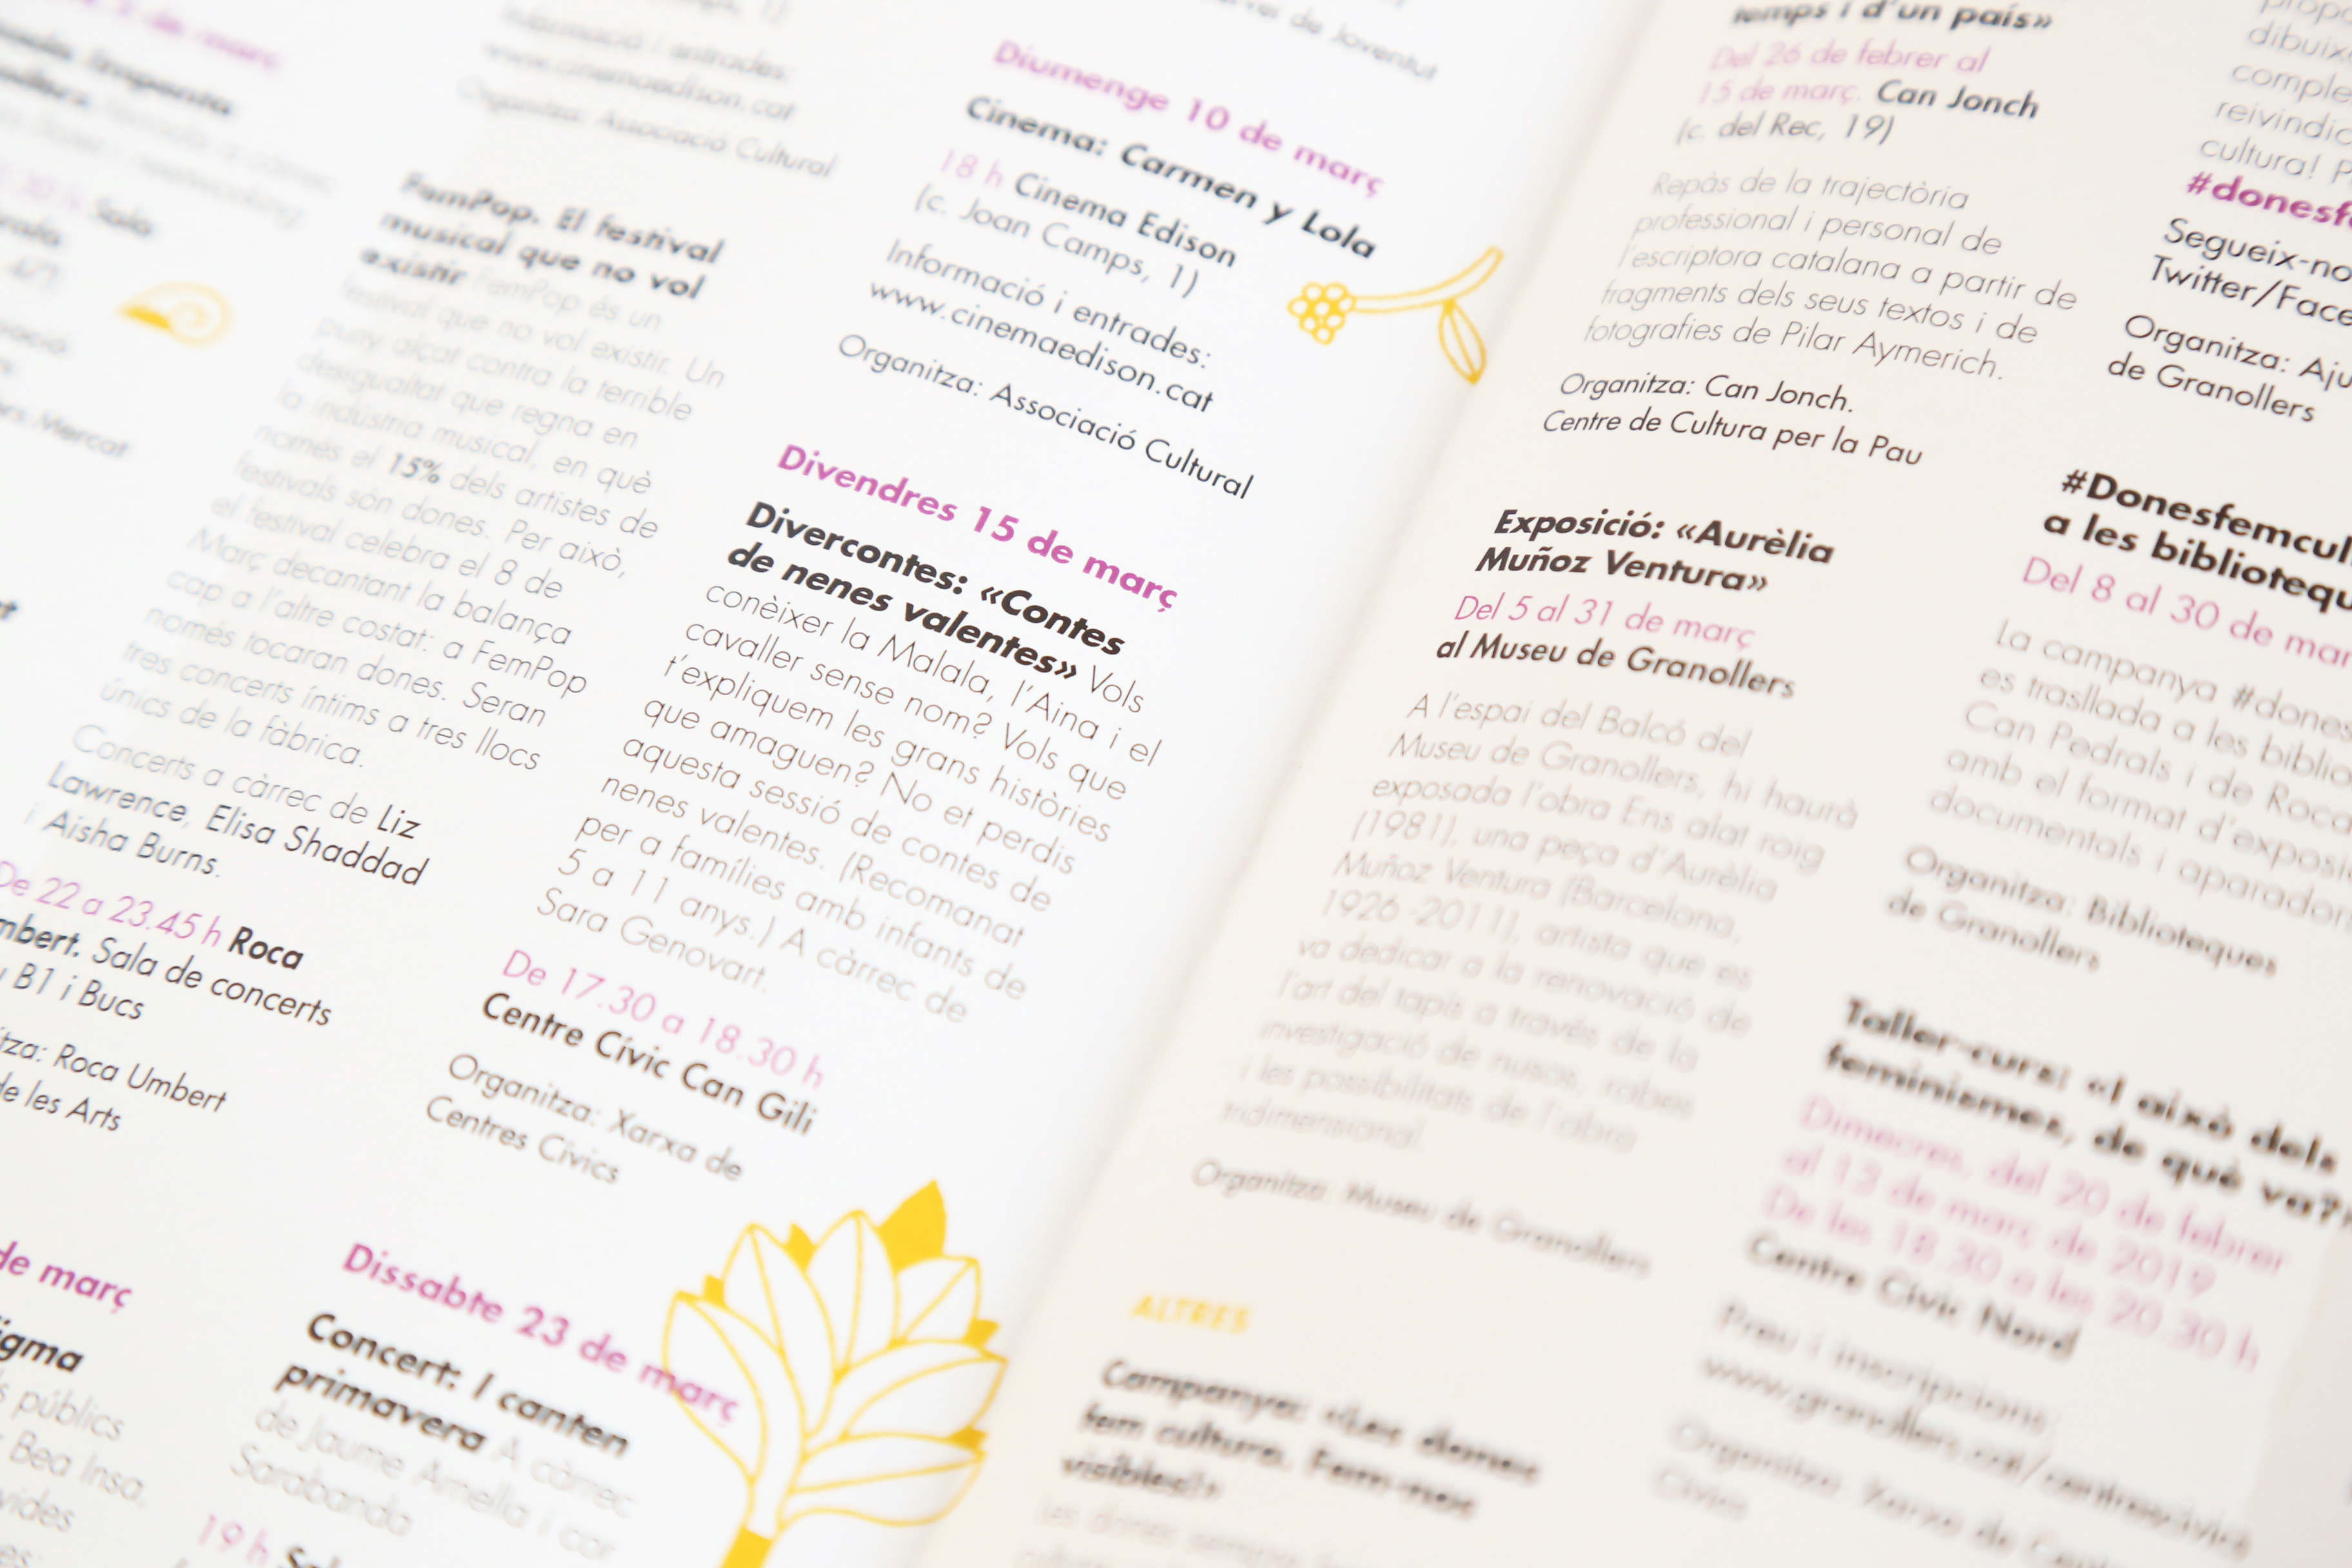 de març
Sala
Mercat
de març
públics
Bea Insa,
Informació i entrades:
www.cinemaedison.cat
Organitza: Associació Cultural
FemPop. El festival
musical que no vol
existir FemPop és un
festival que no vol existir. Un
puny alçat contra la terrible
desigualtat que regna en
la indústria musical, en què
només el 15% dels artistes de
festivals són dones. Per això,
el festival celebra el 8 de
Març decantant la balança
cap a l'altre costat: a FemPop
només tocaran dones. Seran
tres concerts íntims a tres llocs
únics de la fàbrica.
Concerts a càrrec de Liz
Lawrence, Elisa Shaddad
i Aisha Burns.
De 22 a 23.45 h Roca
Sala de concerts
B1 i Bucs
Roca Umbert
de les Arts
Dissabte 23 de març
Concert: I canten
primavera A càrrec
de Jaume Arnella i cor
Sarabanda
19 h
de Joventut
Diumenge 10 de març
Cinema: Carmen y Lola
18 h Cinema Edison
(c. Joan Camps, 1)
Informació i entrades:
www.cinemaedison.cat
Organitza: Associació Cultural
Divendres 15 de març
Divercontes: «Contes
de nenes valentes» Vols
conèixer la Malala, l'Aina i el
cavaller sense nom? Vols que
t'expliquem les grans històries
que amaguen? No et perdis
aquesta sessió de contes de
nenes valentes. (Recomanat
per a famílies amb infants de
5 a 11 anys.) A càrrec de
Sara Genovart.
De 17.30 a 18.30 h
Centre Cívic Can Gili
Organitza: Xarxa de
Centres Cívics
temps i d'un país»
Del 26 de febrer al
15 de març. Can Jonch
(c. del Rec, 19)
Repàs de la trajectòria
professional i personal de
l'escriptora catalana a partir de
fragments dels seus textos i de
fotografies de Pilar Aymerich.
Organitza: Can Jonch.
Centre de Cultura per la Pau
Exposició: «Aurèlia
Muñoz Ventura»
Del 5 al 31 de març
al Museu de Granollers
A l'espai del Balcó del
Museu de Granollers, hi haurà
exposada l'obra Ens alat roig
(1981), una peça d'Aurèlia
Muñoz Ventura (Barcelona,
1926 -2011), artista que es
va dedicar a la renovació de
l'art del tapís a través de la
investigació de nusos, robes
i les possibilitats de l'obra
tridimensional.
Organitza: Museu de Granollers
ALTRES
Campanya: «Les dones
fem cultura. Fem-nos
visibles!»
Les dones sempre
cultura! P
Twitter/Face
Organitza:
de Granollers
a les
Del 8 al 30 de
La campanya
es trasllada a les
Can Pedrals i de Roca
amb el format
documentals i
Organitza: Biblioteques
de Granollers
Taller-curs: «I això dels
feminismes, de què va?»
Dimecres, del 20 de febrer
al 13 de març de 2019
De les 18.30 a les 20.30 h
Centre Cívic Nord
Preu i inscripcions:
www.granollers.cat/centrescivics
Organitza: Xarxa de
Cívics